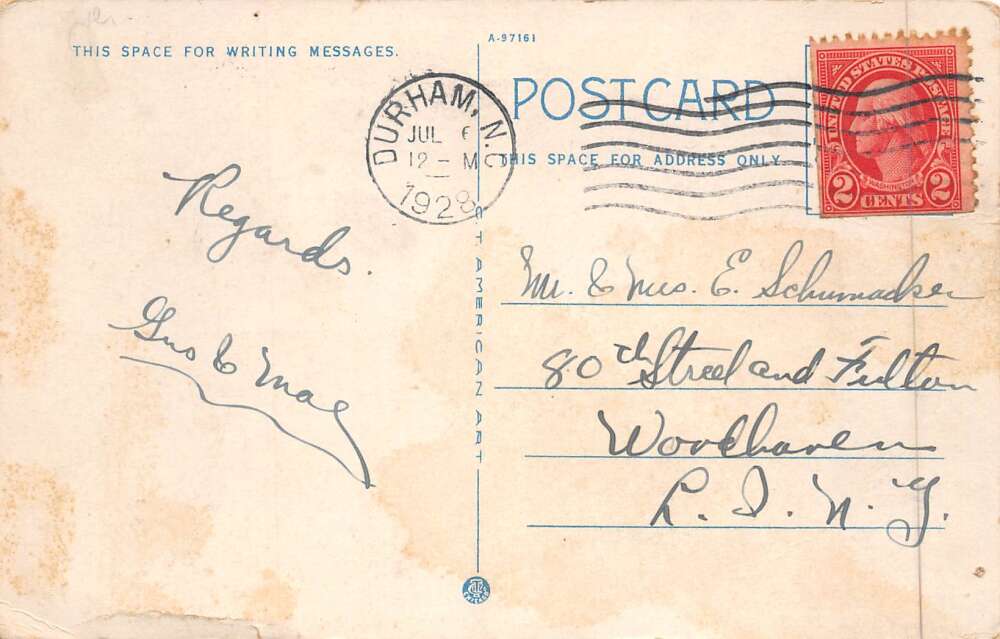 THIS SPACE FOR WRITING MESSAGES.
A-97161
POST CARD
THIS SPACE FOR ADDRESS ONLY.
DURHAM, N.C.
JUL 6
12 - M
1928
UNITED STATES POSTAGE
WASHINGTON
2 CENTS 2
Regards.
Gus & Mae
Mr. & Mrs. E. Schumacker
80th Street and Fulton
Woodhaven
L. I. N. Y.
C T AMERICAN ART